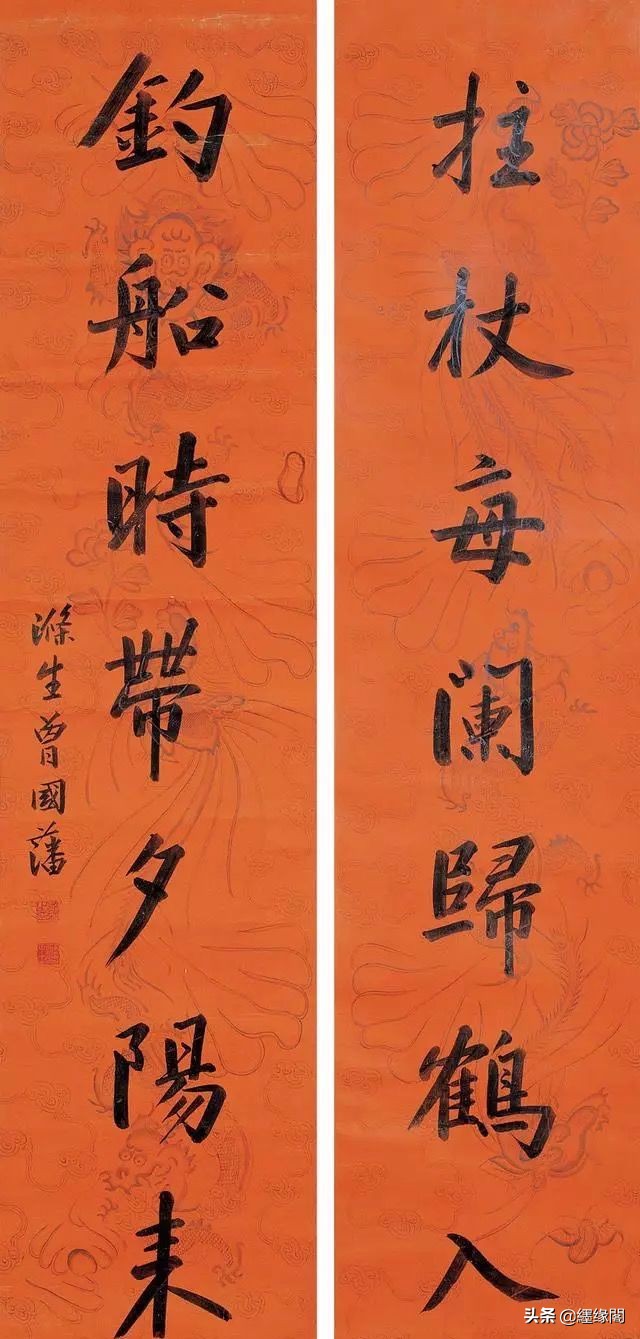 拄杖每闌歸鶴入
釣船時帶夕陽来
滌生曾國藩
头条 @缘閣